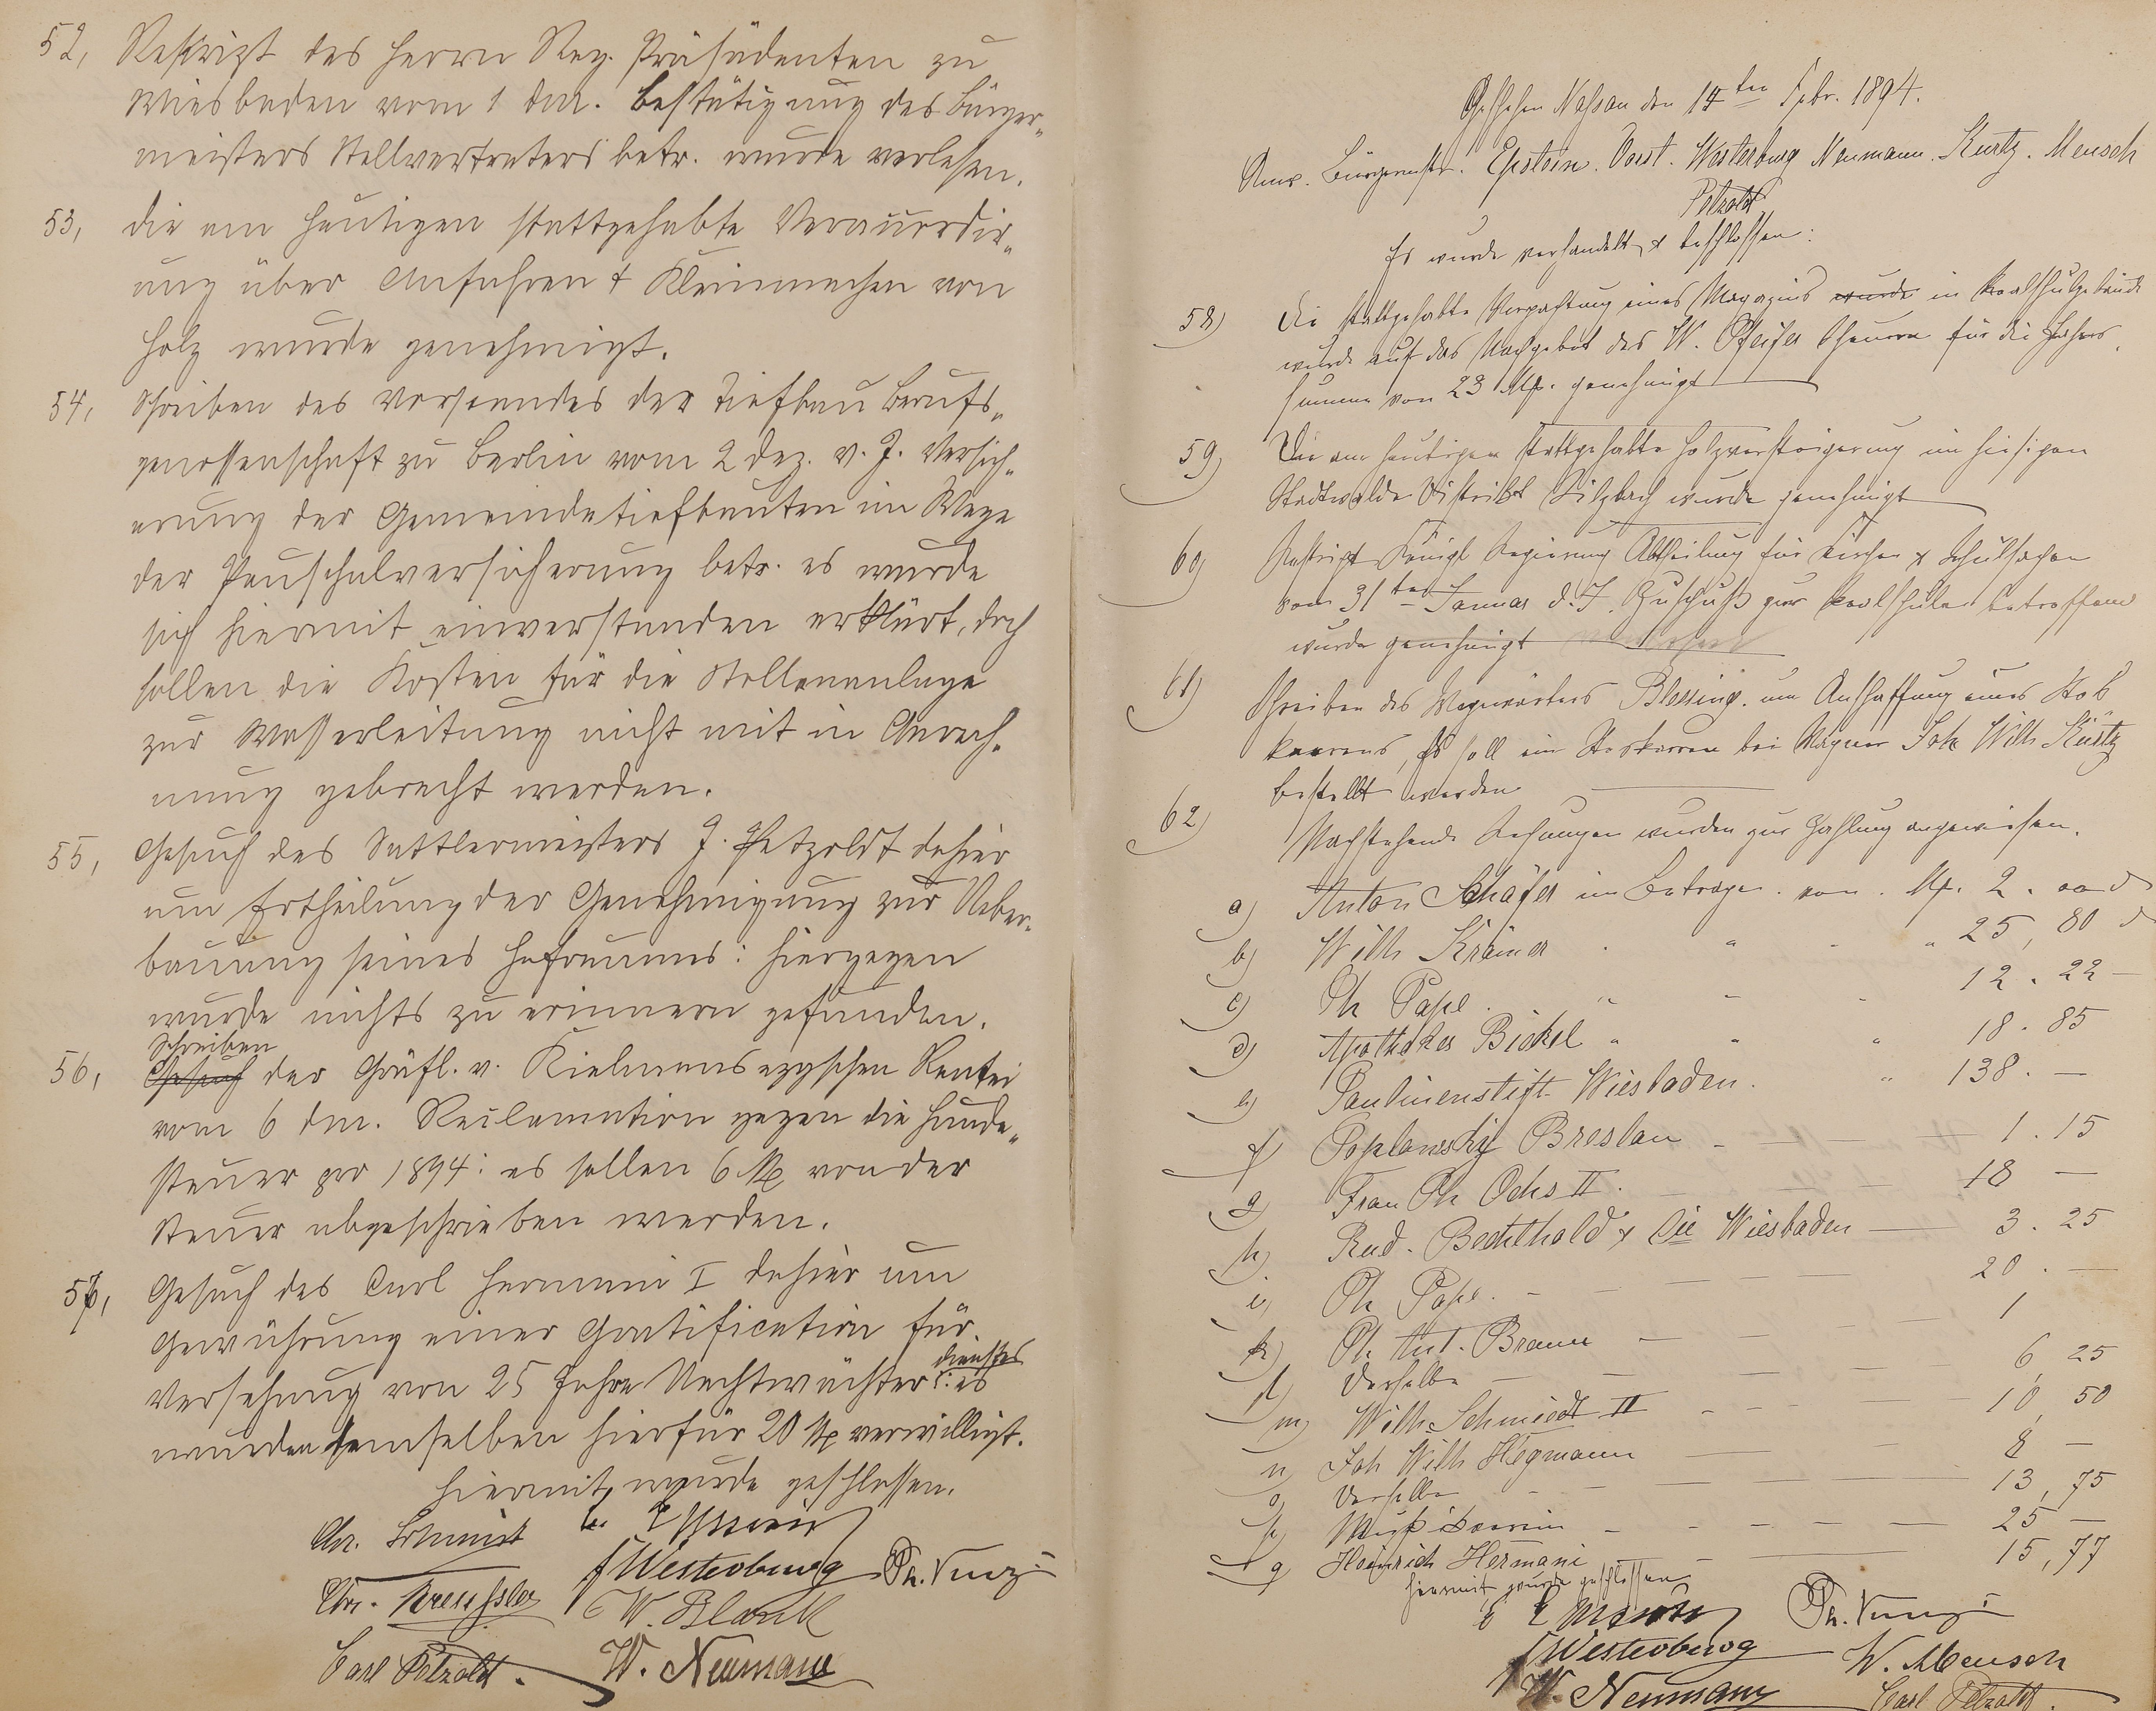 52, Reskript des Herrn Reg. Präsidenten zu
Wiesbaden vom 1 dM. Bestätigung des Bürger-
meisters Stellvertreters betr. wurde verlesen.
53, die am heutigen stattgehabte Veraccordir-
ung über Anfuhren & Kleinmachen von
Holz wurde genehmigt.
54, Schreiben des Vorstandes der Tiefbau Berufs-
genossenschaft zu Berlin vom 2 Dez. v. J. Versich-
erung der Gemeindetiefbauten im Wege
der Pauschalversicherung betr. es wurde
sich hiermit einverstanden erklärt, doch
sollen die Kosten für die Stollenanlage
zur Wasserleitung nicht mit in Anrech-
nung gebracht werden.
55, Gesuch des Sattlermeisters J. Petzoldt dahier
um Ertheilung der Genehmigung zur Ueber-
bauung seines Hofraums: hiergegen
wurde nichts zu erinnern gefunden.
Schreiben
56, Gesuch der Gräfl. v. Kielmanseggschen Rentei
vom 6 dM. Reclamation gegen die Hunde-
steuer pro 1894: es sollen 6 M von der
Steuer abgeschrieben werden.
57, Gesuch des Carl Hermani I dahier um
Gewährung einer Gratification für
dienstes
Versehung von 25 Jahre Nachtwächter: es
wurden demselben hierfür 20 M verwilligt.
Hiermit wurde geschlossen.
Chr. Schmidt
F Westerburg Ph. Kurz
Chr. Kreussler W. Blank
Carl Petzoldt. W. Neumann
Geschehen Nassau den 14ten Febr. 1894.
Anw. Bürgermstr. Epstein. Vorst. Westerburg Neumann. Kurtz. Mensch
Petzoldt
Es wurde verhandelt & beschlossen:
58) Die stattgehabte Verpachtung eines Magazins wurde in Realschulgebäude
wurde auf das Nachgebot des W. Pfeifer Scheuern für die Jahres
summe von 23 M. genehmigt
59) Die am heutigen stattgehabte Holzversteigerung im hiesigen
Stadtwalde Distrikt Silzbach wurde genehmigt
60) Reskript Königl Regierung Abtheilung für Kirchen & Schulsachen
vom 31ten Januar d. J. Zuschuß zur Realschule betreffend
wurde genehmigt
61) Schreiben des Wegwärters Blessing. um Anschaffung eines Stoß
karrens, Es soll ein Stoskarren bei Wagner Joh Wilh Kürtz
bestellt werden
62) Nachstehende Rechnungen wurden zur Zahlung angewiesen.
a) Anton Schäfer im Betrage von M. 2. 00 d
b) Wilh Krämer " " 25, 80 d
c) Ph Pape " 12. 22 —
d) Apotheker Bickel " " 18. 85
e) Paulinenstift Wiesbaden. " 138. —
f) Poplawsky Breslau — 1. 15
g) Frau Ph Ochs II. 18 —
h) Rud. Bechthold & Cie Wiesbaden — 3. 25
i) Ph Pape. — 20. —
k) Ph Ant. Braun — 1
l) Derselbe — 6, 25
m) Wilh. Schmidt II 10, 50
n) Joh Wilh Hegmann 8 —
o) Derselbe — 13, 75
p) Musikverein — 25 —
q) Heinrich Hermani 15, 77
Hiermit wurde geschlossen
Ph. Kurz
F Westerburg W. Mensch
W. Neumann Carl Petzoldt.